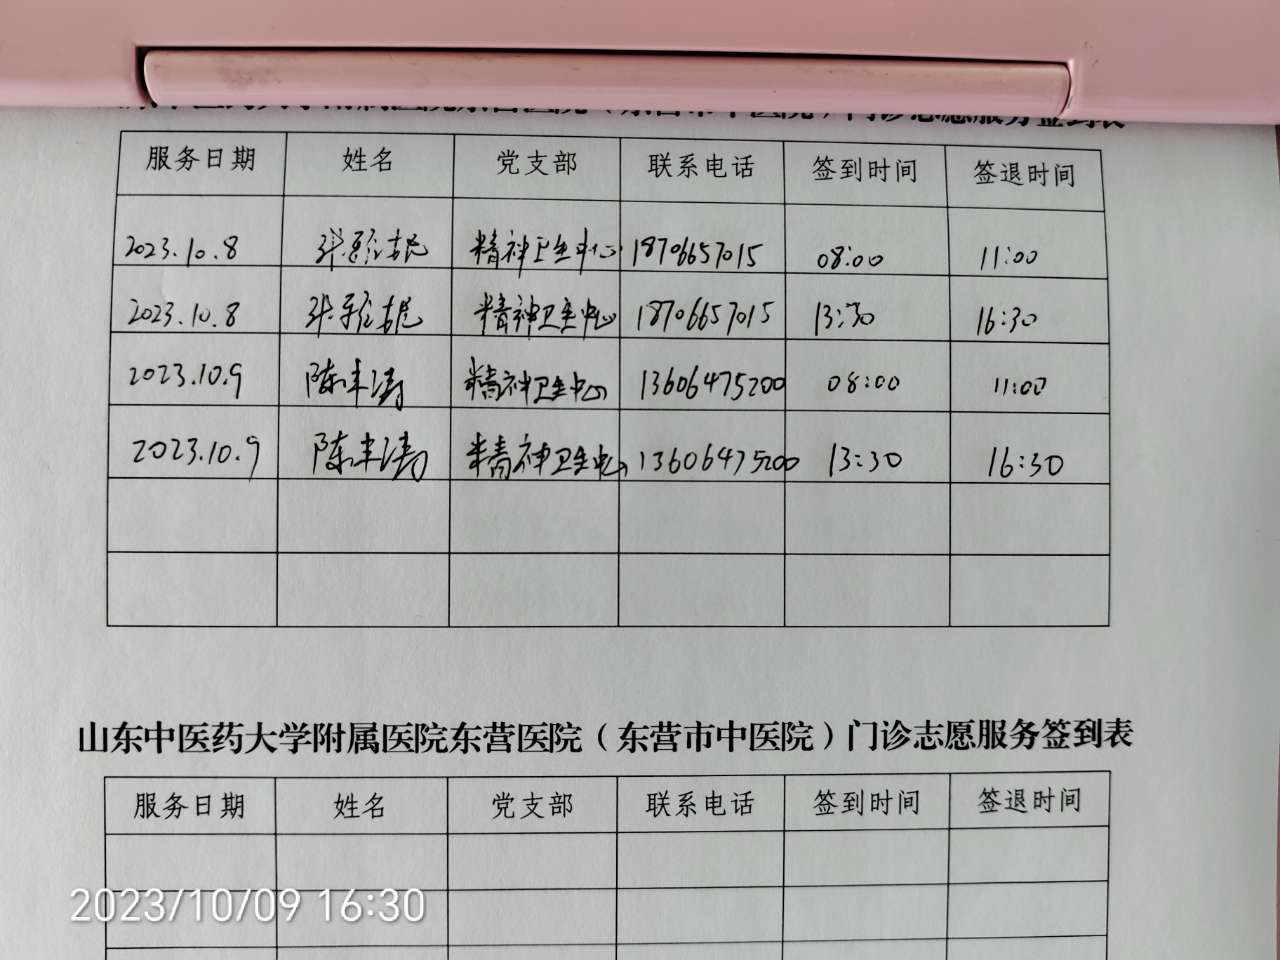 山东中医药大学附属医院东营医院（东营市中医院）门诊志愿服务签到表
服务日期 姓名 党支部 联系电话 签到时间 签退时间
2023.10.8 张 精神卫生中心 18706657015 08:00 11:00
2023.10.8 张 精神卫生中心 18706657015 13:30 16:30
2023.10.9 陈丰涛 精神卫生中心 13606475200 08:00 11:00
2023.10.9 陈丰涛 精神卫生中心 13606475200 13:30 16:30
山东中医药大学附属医院东营医院（东营市中医院）门诊志愿服务签到表
服务日期 姓名 党支部 联系电话 签到时间 签退时间
2023/10/09 16:30